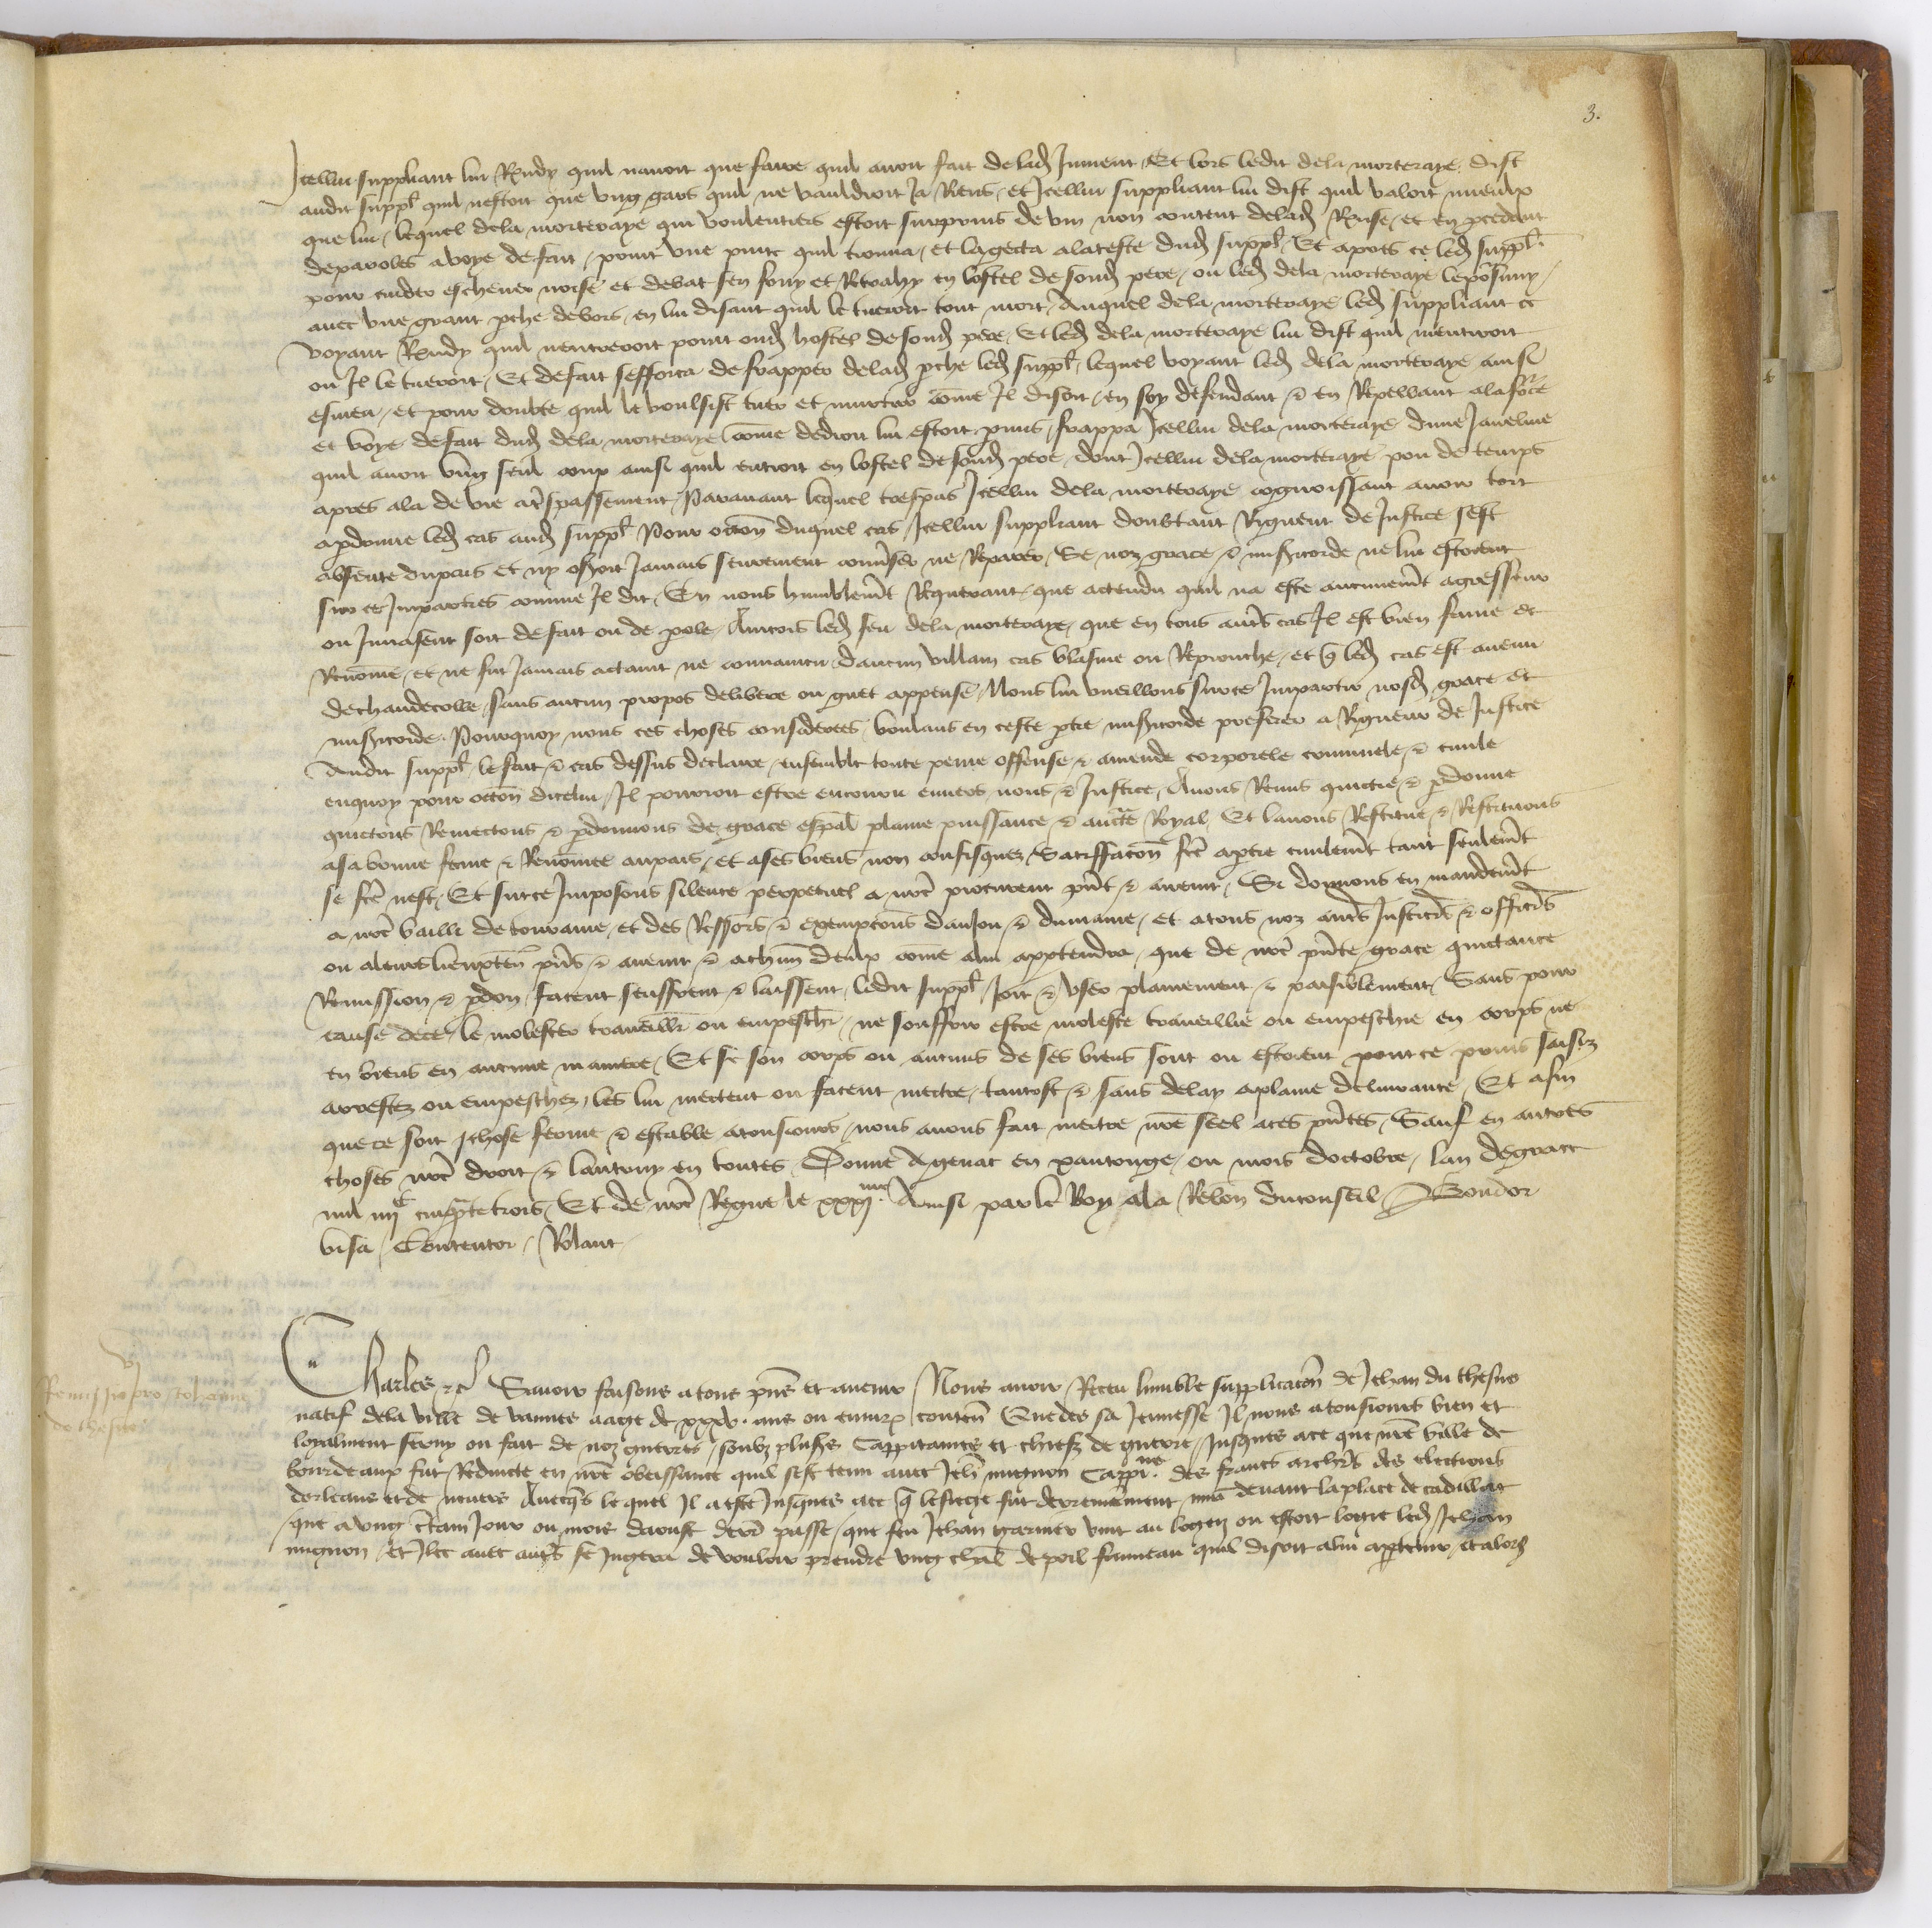 3.
Icellui suppliant lui Rndy quil navoit que faire quil avoit fait de lad Jument Et lors ledit dela morteraye dist
audit suppl quil nestoit que ung gars quil ne vauldroit ja Riens et Icellui suppliant lui dist quil valoit mieulx
que lui lequel dela morteraye qui voulentiers estoit surprins de vin non content delad Rnse et en pcedant
deparoles a voye de fait print une pinte quil trouva et la gecta alateste dud suppl Et apres ce led suppl
pour cuider eschever noise et debat sen fouy et Retrahy en lostel de sond pere ou led dela morteraye le psuivy
avec une grant pche dehors en lui disant quil le tueroit tout mort Auquel dela morteraye led suppliant ce
voyant Rndy quil nentreroit point oud hostel de sond pere Et led dela morteraye lui dist quil mentiroit
ou Il le tueroit Et de fait sefforca de frapper delad pche led suppl lequel voyant led dela morteraye ainsi
esmeu et pour doubte quil le voulsist tuer et murtrir comme Il disoit en soy defendant & en Repellant ala force
et voye de fait dud dela morteraye come dedroit lui estoit pmis frappa Icellui dela morteraye dune Javeline
quil avoit ung seul coup ainsi quil entroit en lostel de sond pere dont Icellui dela morteraye pou de temps
apres ala de vie a trespassement Paravant lequel trespas Icellui dela morteraye cognoissant avoir tort
apdonne led cas aud suppl Pour occon duquel cas Icellui suppliant doubtant Rigueur de Justice sest
absente dupais et ny oseroit Jamais seurement converser ne Reparer Se noz grace & misericorde ne lui estoient
sur ce Imparties comme Il dit En nous humblemt Requerant que actendu quil na este aucunemt agresseur
ou Invaseur soit de fait ou de pole Aincois led feu dela morteraye que en tous autres cas Il est bien fame et
Renome et ne fut Jamais actaint ne convaincu daucun villain cas blasme ou Reprouche et q led cas est avenu
de chaudecolle sans aucun propos delibere ou guet appense Nous lui vueillons sur ce Impartir nosd grace et
misericorde Pourquoy nous ces choses considerees voulans en ceste ptie misericorde preferer a Rigueur de Justice
Audit suppl le fait & cas dessus declaire ensemble toute peine offense & amende corporele criminele & civile
enquoy pour occon dicelui Il pourroit estre encouru envers nous & Justice Avons Remis quictie & pdonne
quictons Remectons & pdonnons de grace espal plaine puissance & aucte Royal Et lavons Restitue & Restituons
asa bonne fame & Renommee aupais et ases biens non confisquez Satisfacon fce aptie civilemt tant seulemt
se fce nest Et sur ce Imposons silence perpetuel a nre procureur pnt & avenir Si donnons en mandemt
a nre bailli de touraine et des Ressors & exempcons danjou & dumaine et atous noz autres Justiciers & officiers
ou aleurs lieuxten pns & avenir & achun deulx come alui apptendra que de nre pnte grace quictance
Remission & pdon facent seuffrent & laissent ledit suppl Joir & user plainement & paisiblement Sans pour
cause dece le molester traveillr ou empeschr ne souffrir estre moleste traveillie ou empeschie en corps ne
en biens en aucune maniere Et se son corps ou aucuns de ses biens sont ou estoient pour ce prins saisiz
arrestez ou empeschez les lui mectent ou facent mectre tantost & sans delay aplaine delivrance Et afin
que ce soit chose ferme & estable atousiours nous avons fait mectre nre seel aces pntes Sauf en autres
choses nre droit & lautruy en toutes Donne Agenac en xantonge ou mois doctobre lan degrace
mil iiiic cinqtetrois Et de nre Regne le xxxime Ainsi par le Roy ala Relon duconseil
visa Contentor Rolant
vi
Remissio pro Johanne
du chesne
Charles &c Savoir faisons atous pns et avenir Nous avoir Receu humble supplicacon de Jehan du chesne
natif dela ville de vannes aage de xxxv. ans ou environ conten Que des sa Jeunesse Il nous atousiours bien et
loyalment servy ou fait de noz guerres soubz plusrs Cappitaines et chiefz de guerre Jusques ace que nre ville de
bourdeaux fut Reduicte en nre obeissance quil sest tenu avec Jehn mignon Cappine des francs archrs des elections
dorleans et de nevers Avecqs lequel Il a este Jusques ace q le siege fut derrenierement mis devant laplace de cadillac
que a ung ctain Jour ou mois daoust derr passe que feu Jehan garnier vint au logeiz ou estoit logie led Jehan
mignon et Ilec avec autrs se Ingera de vouloir prendre ung chal de poil fauveau quil disoit alui aptenir et alors